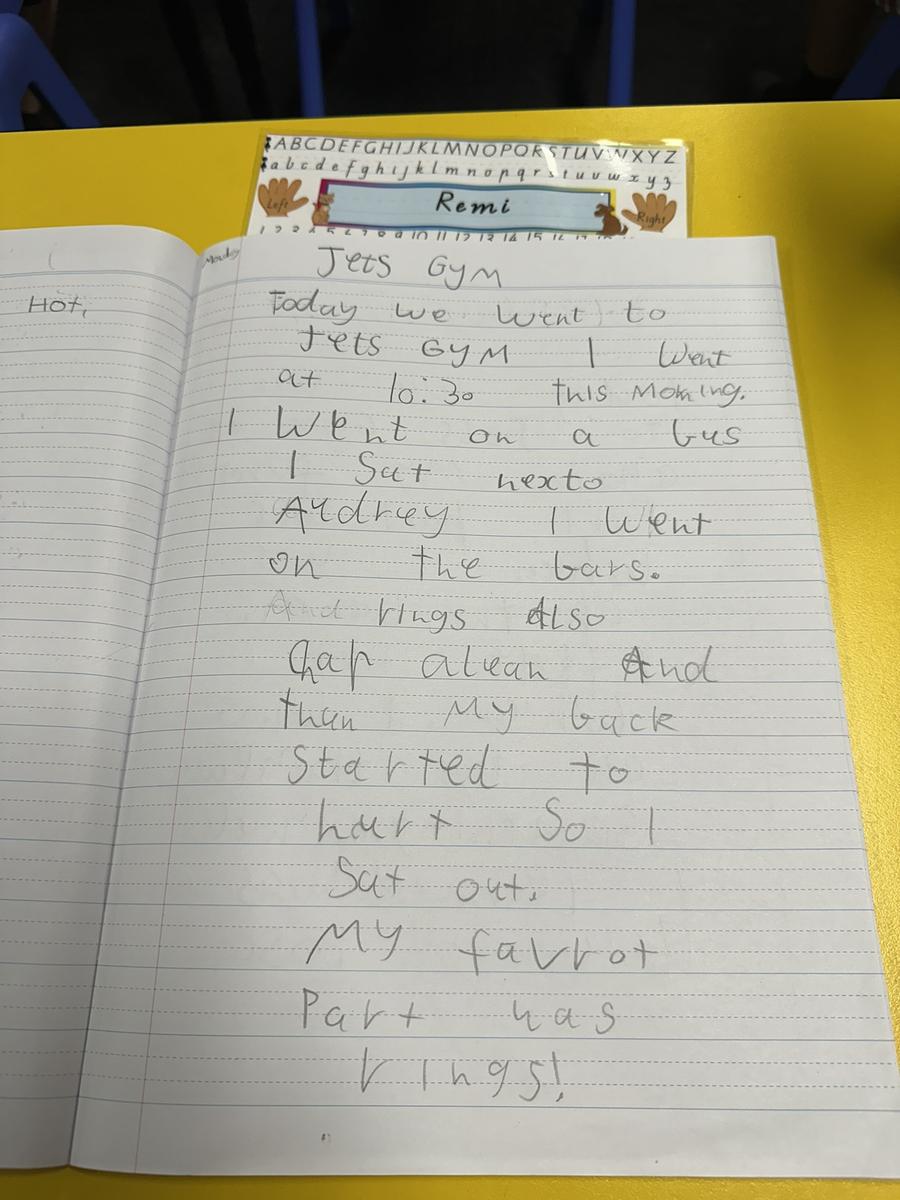 ABCDEFGHIJKLMNOPQRSTUVWXYZ
abcdefghijklmnopqrstuvwxyz
Left
Remi
Right
1 2 3 4 5 6 7 8 9 10 11 12 13 14 15 16 17 18
Hot,
Monday
Jets GYM
Today we went to
Jets GYM I Went
at 10:30 this Morning.
I Went on a bus
I Sat nexto
Audrey I Went
on the bars.
And rings Also
And
than My back
Started to
hurt So I
Sat out.
My favrot
Part was
rings!